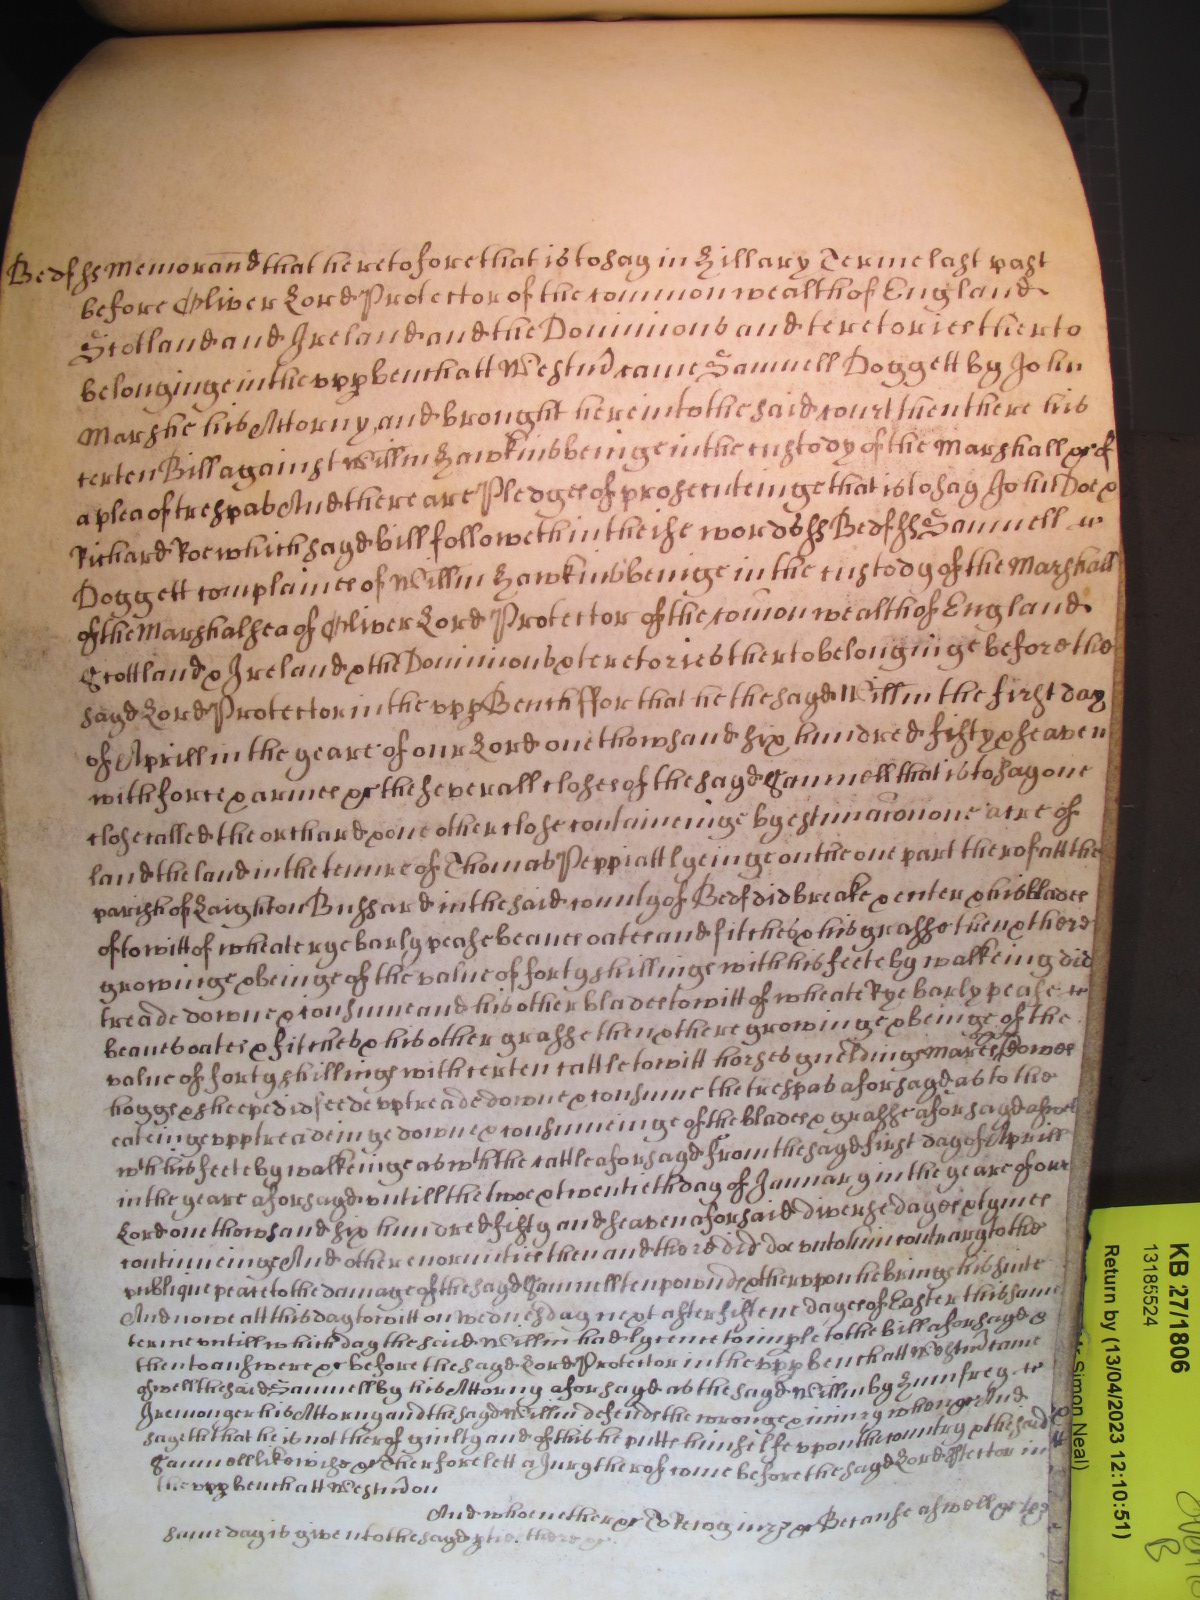 Bedf ss Memorand that heretofore that is to say in Hillary Terme last past
before Oliver Lord Protector of the common wealth of England
Scotland and Ireland and the Dominions and teretories therto
belonginge in the upp bench att Westm came Samuell Doggett by John
Marshe his Attorny and brought here into the said court then there his
certen Bill against Willm Hawkins beinge in the custody of the Marshall &c of
a plea of trespas And there are Pledges of prosecuteinge that is to say John Doe &
Richard Roe which sayd bill followeth in theise words ss Bedf ss Samuell
Doggett complaines of Willm Hawkins beinge in the custody of the Marshall
of the Marshalsea of Oliver Lord Protector of the comon wealth of England
Scottland & Ireland & the Dominions & teretories therto belonginge before the
sayd Lord Protector in the upp Bench ffor that he the sayd Willm the first day
of Aprill in the yeare of our Lord one thowsand six hundred fifty & seaven
with force & armes &c the severall closes of the sayd Samuell that is to say one
close called the orchard & one other close containeinge by estimacon one acre of
land the land in the tenure of Thomas Peppiatt lyeinge on the one part therof att the
parish of Laighton Bussard in the said county of Bedf did breake & enter & his blades
of to witt of wheate rye barly pease beanes oates and fitches & his grasse then & there
growinge & beinge of the value of forty shillings with his feete by walkeing did
treade downe & consume and his other blades to witt of wheate Rye barly pease
beanes oates & fitches & his other grasse then & there growinge & beinge of the
value of forty shillings with certen cattle to witt horses gueldings mares cowes
hoggs & sheepe did feede upp treade downe & consume the trespas aforsayd as to the
eateinge upp treadeinge downe & consumeinge of the blades & grasse aforsayd aswel
wth his feete by walkeinge as wth the cattle aforsayd From the sayd first day of Aprill
in the yeare aforsayd untill the twoe & twentieth day of January in the yeare of our
Lord one thowsand six hundred fifty and seaven aforsaid diverse dayes & tymes
continueinge And other enormities then and there did doe unto him contrary to the
publique peace to the damage of the sayd Samuell ten pownds & therupon he brings his suite
And nowe att this day to witt on wednesday next after fiftene dayes of Easter this same
terme untill which day the said Willm had lycence to imple to the bill aforsayd &
then to answere &c before the sayd Lord Protector in the upp bench att Westm came
aswell the said Samuell by his Attorny aforsayd as the sayd Willm by Humfrey
Iremonger his Attorny and the sayd Willm defends the wronge & iniury when &c And
sayeth that he is not therof guilty and of this he putts himselfe upon the country & the said
Samuell likewise &c Therfore lett a Jury therof come before the sayd Lord Ptector in
the upp bench att Westm on
And whoe nether &c To Recognize &c Because aswell &c the
same day is given to the sayd pties there &c
KB 27/1806
13185524
Simon Neal)
Return by (13/04/2023 12:10:51)